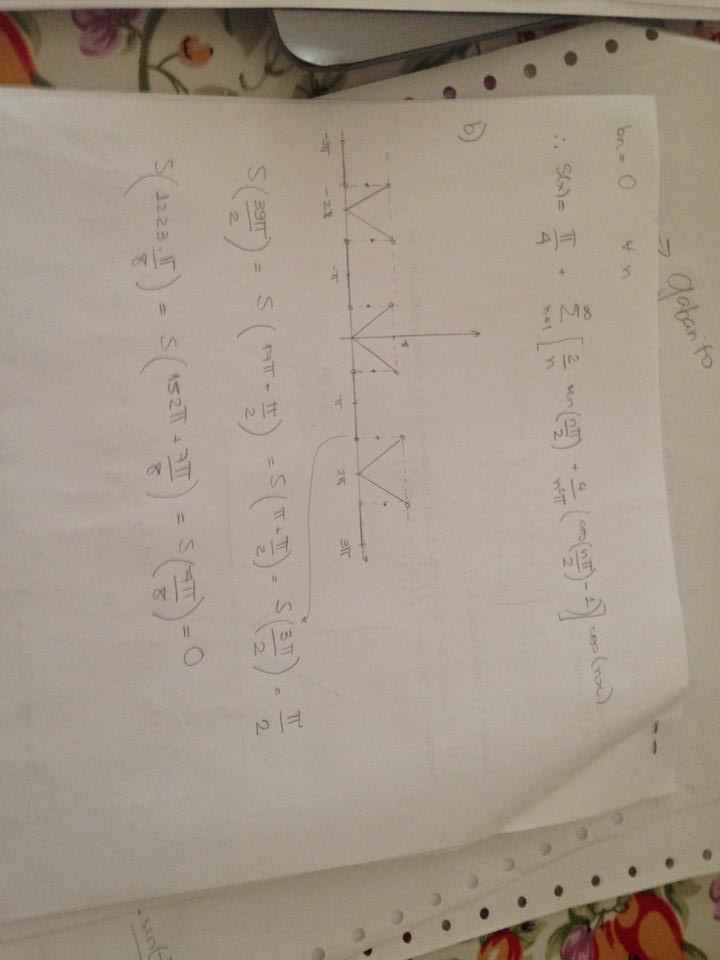 → Gabarito
bn = 0 ∀ n
∴ S(x) = π/4 + ∞Σn=1 [ 2/n sen(nπ/2) + 4/n²π (cos(nπ/2) - 1) ] cos(nx)
b)
π
-3π -2π -π π 2π 3π
S(39π/2) = S(π + π/2) = S(3π/2) = π/2
S(1223·π/8) = S(152π + 7π/8) = S(7π/8) = 0